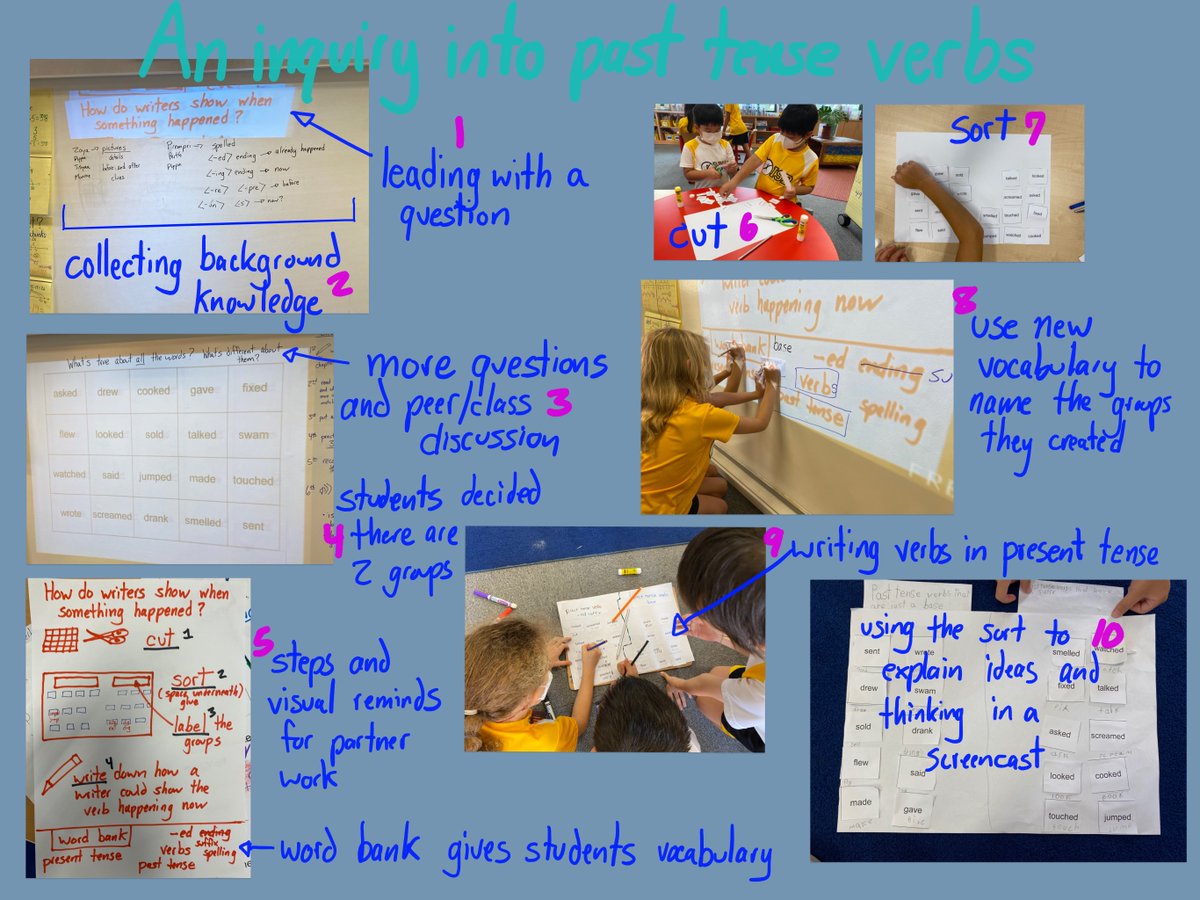 An inquiry into past tense verbs
How do writers show when
something happened?
Zoya → pictures
details
before and after
clues
spelled
<-ed> ending → already happened
<-ing> ending → now
<-re> <-pre> → before
<s> → now?
collecting background
knowledge 2
1
leading with a
question
cut 6
sort 7
What's true about all the words? What's different about
them?
asked drew cooked gave fixed
flew looked sold talked swam
watched said jumped made touched
wrote screamed drank smelled sent
more questions
and peer/class 3
discussion
students decided
4 there are
2 groups
verb happening now
word bank base -ed ending
verbs
past tense spelling
8
use new
vocabulary to
name the groups
they created
How do writers show when
something happened?
cut 1
sort 2
(space underneath)
glue
label 3 the
groups
write 4 down how a
writer could show the
verb happening now
word bank -ed ending
verbs suffix
present tense past tense spelling
5
steps and
visual reminds
for partner
work
word bank gives students vocabulary
9 writing verbs in present tense
Past tense verbs that
are just a base.
using the sort to 10
explain ideas and
thinking in a
screencast
sent wrote smelled watched
drew swam fixed talked
sold drank asked screamed
flew said looked cooked
made gave touched jumped